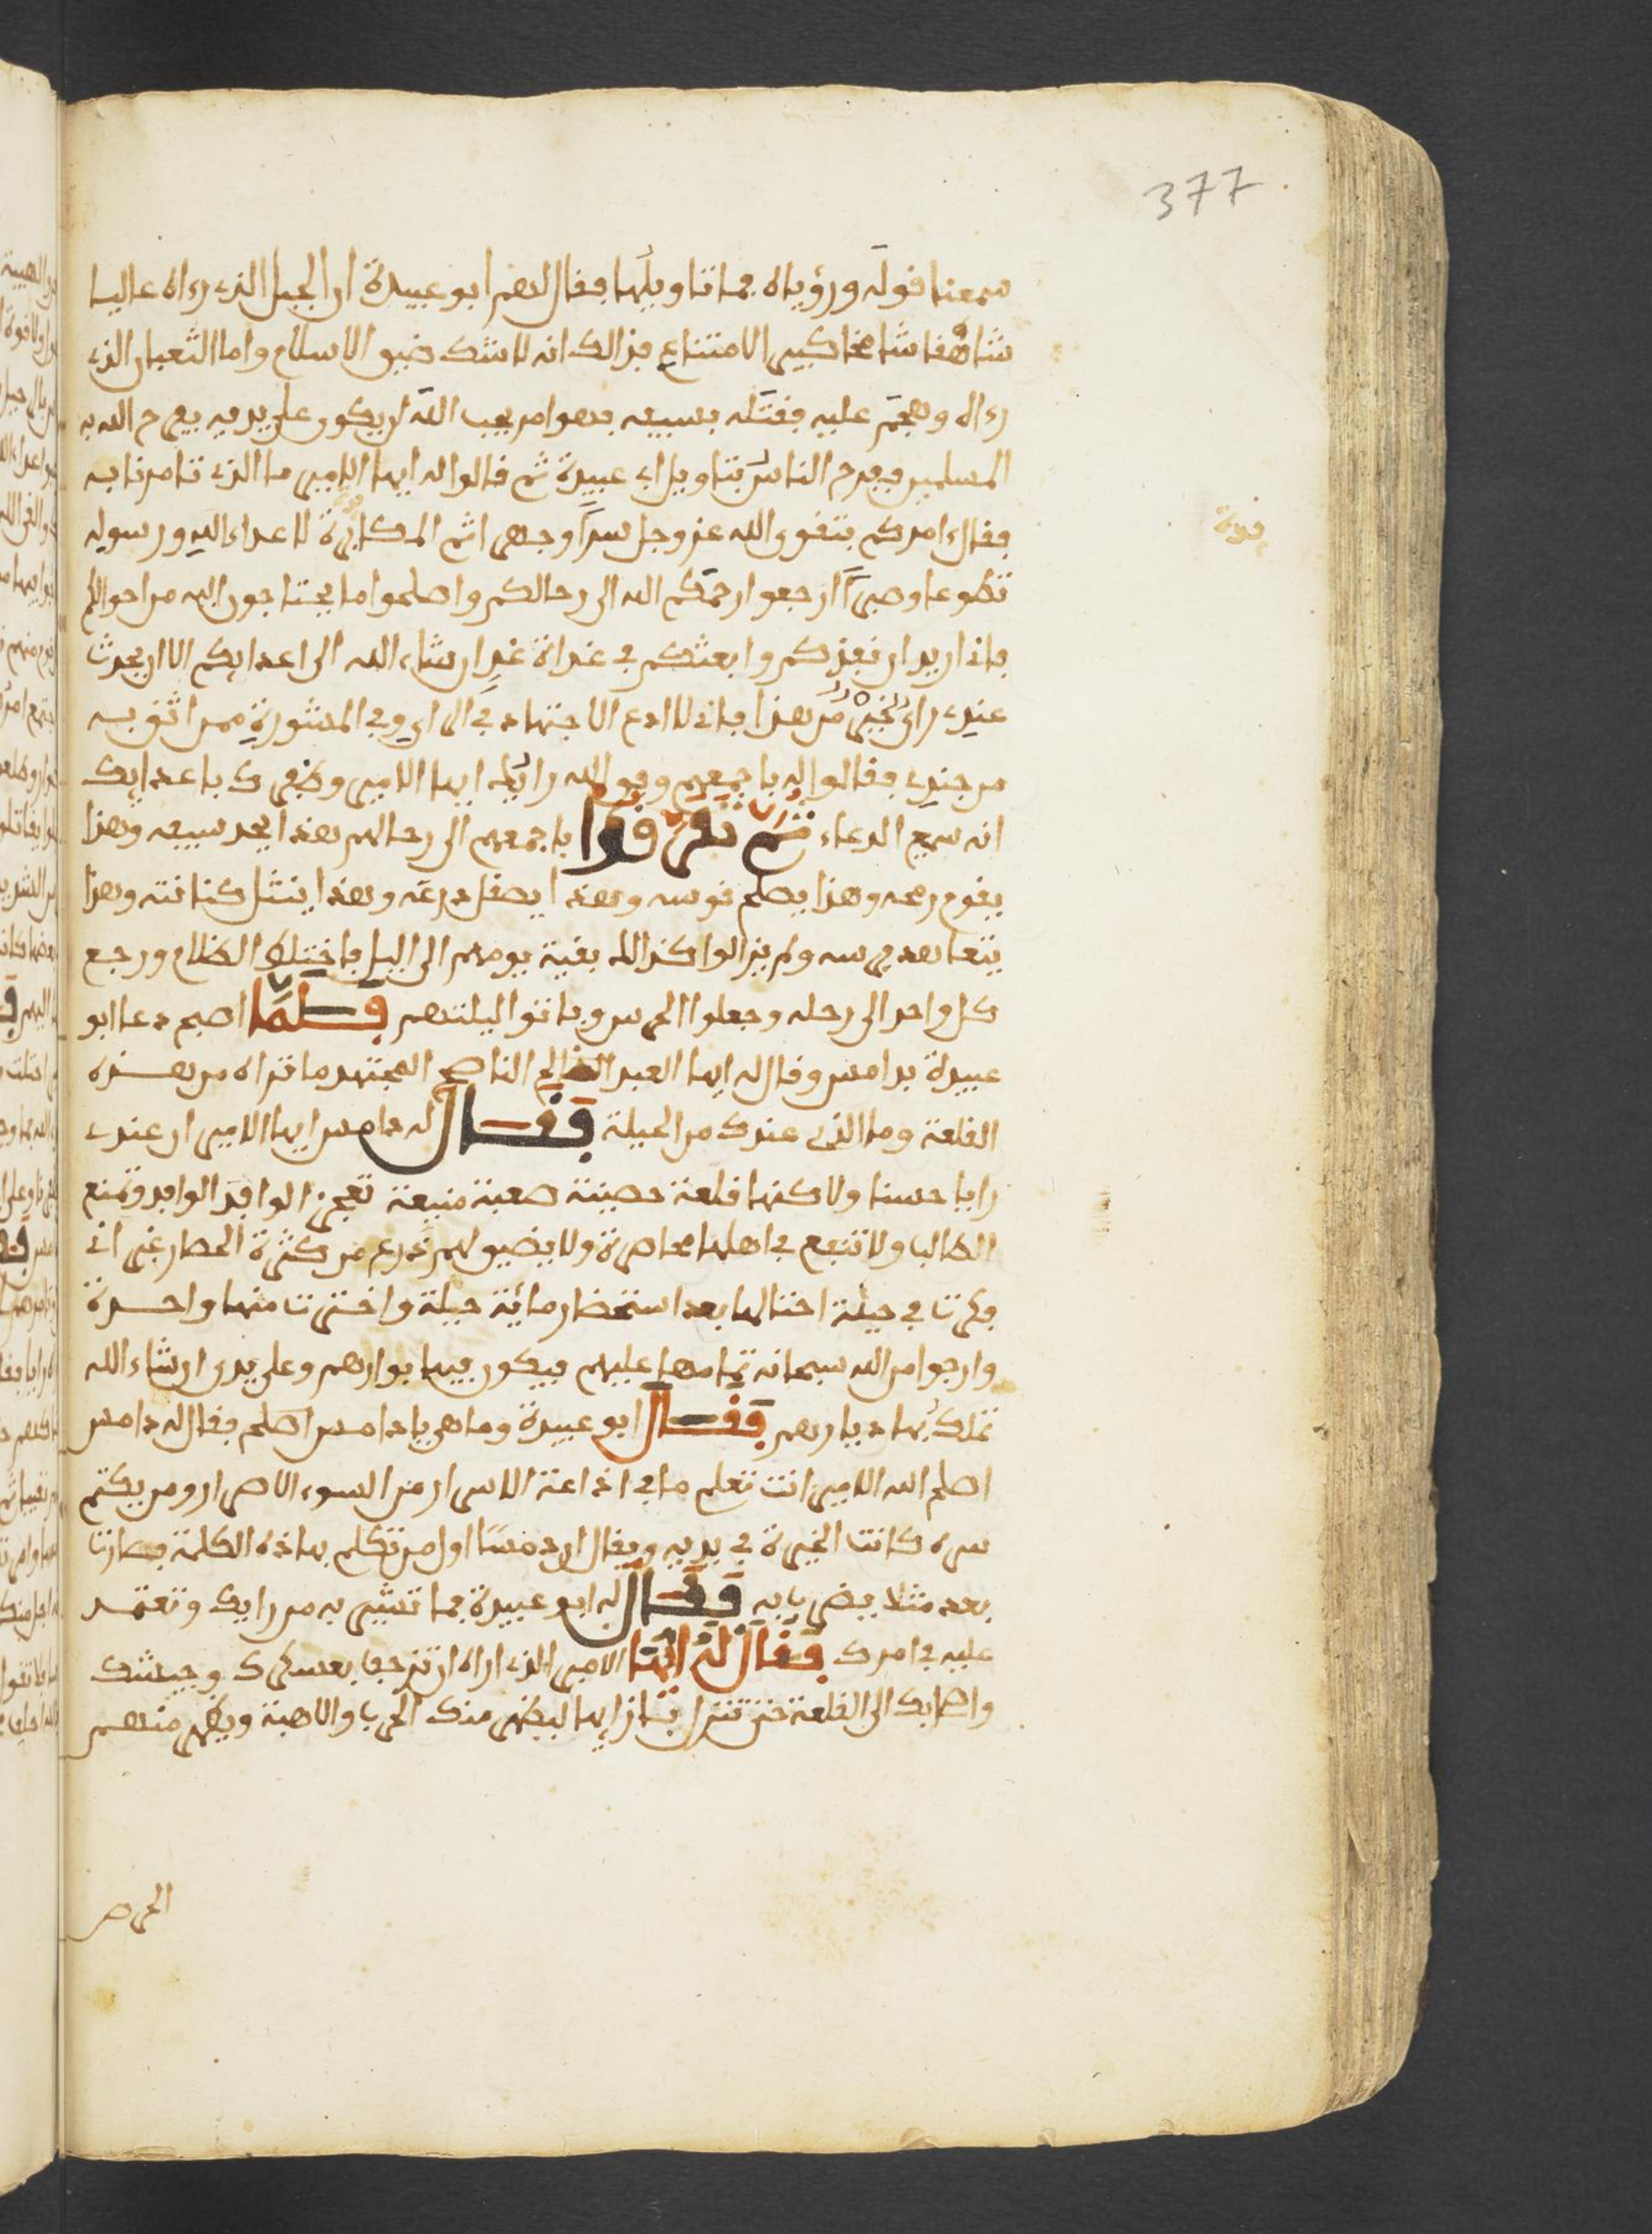 377
سمعنا قوله ورؤياه فما تاويلها فقال لهم ابو عبيدة ان الجبل الذي رءاه عاليا
شاهقا شامخا كبير الامتناع فذالك انه لا شك ضيق الاسلام واما الثعبان الذي
رءاه وهجم عليه فقتله بسيفه فهو امر يحب الله ان يكون على يديه يفرح الله به
المسلمين ففرح الناس بتاويل ابي عبيدة ثم قالوا له ايها الامير ما الذي تامرنا به
فقال ءامركم بتقوى الله عز وجل سرا وجهرا ثم المكابرة لاعداء الله ورسوله
قوة
تطوعا وصبرا ارجعوا رحمكم الله الى رحالكم واصلحوا ما تحتاجون اليه من احوالكم
فاني اريد ان نعدكم وابعثكم في غداة غد ان شاء الله الى اعدايكم الا ان يحدث
عندي راي اخير من هذا فاني لا ادع الاجتهاد في الراي وفي المشورة ممن اثق به
من جندي فقالوا له باجمعهم وفق الله رايك ايها الامير وظفرك باعدايك
انه سميع الدعاء ثم تفرقوا باجمعهم الى رحالهم هذا يحد سيفه وهذا
يقوم رمحه وهذا يصلح قوسه وهذا يصقل درعه وهذا ينثل كنانته وهذا
يتعاهد فرسه ولم يزالوا كذالك بقية يومهم الى اليل فاختلط الظلام ورجع
كل واحد الى رحله وجعلوا الحرس وباتوا ليلتهم فلما اصبح دعا ابو
عبيدة بدامس وقال له ايها العبد الصالح الناصح المجتهد ما تراه من هذه
القلعة وما الذي عندك من الحيلة فقال له دامس ايها الامير ان عندي
رايا حسنا ولاكنها قلعة حصينة صعبة منيعة تعجز الوافد الوافد وتمنع
الطالب ولا تنفع في اهلها محاصرة ولا يضيق لهم ذرع من كثرة الحصار غير اني
فكرت في حيلة احتالها بعد استحضار مائية حيلة واخترت منها واحدة
وارجوا من الله سبحانه تمامها عليهم فيكون فيها بوارهم وعلى يدي ان شاء الله
تملك بها ديارهم فقال ابو عبيدة وما هي يا دامس اصلح فقال له دامس
اصلح الله الامير انت تعلم ما في اذاعة الاسرار من السوء الاصرار ومن يكتم
سره كانت الخيرة في يديه ويقال ان دمسا اول من تكلم بهاذه الكلمة فصارت
بعده مثلا يضرب به فقال له ابو عبيدة فما تشير به من رايك وتعتمد
عليه في امرك فقال له ايها الامير الذي اراه ان تزحف بعسكرك وجيشك
واصحابك الى القلعة حتى تنزل بازايها ليظهر منك الحرب والاهبة ويظهر منهم
الحرص